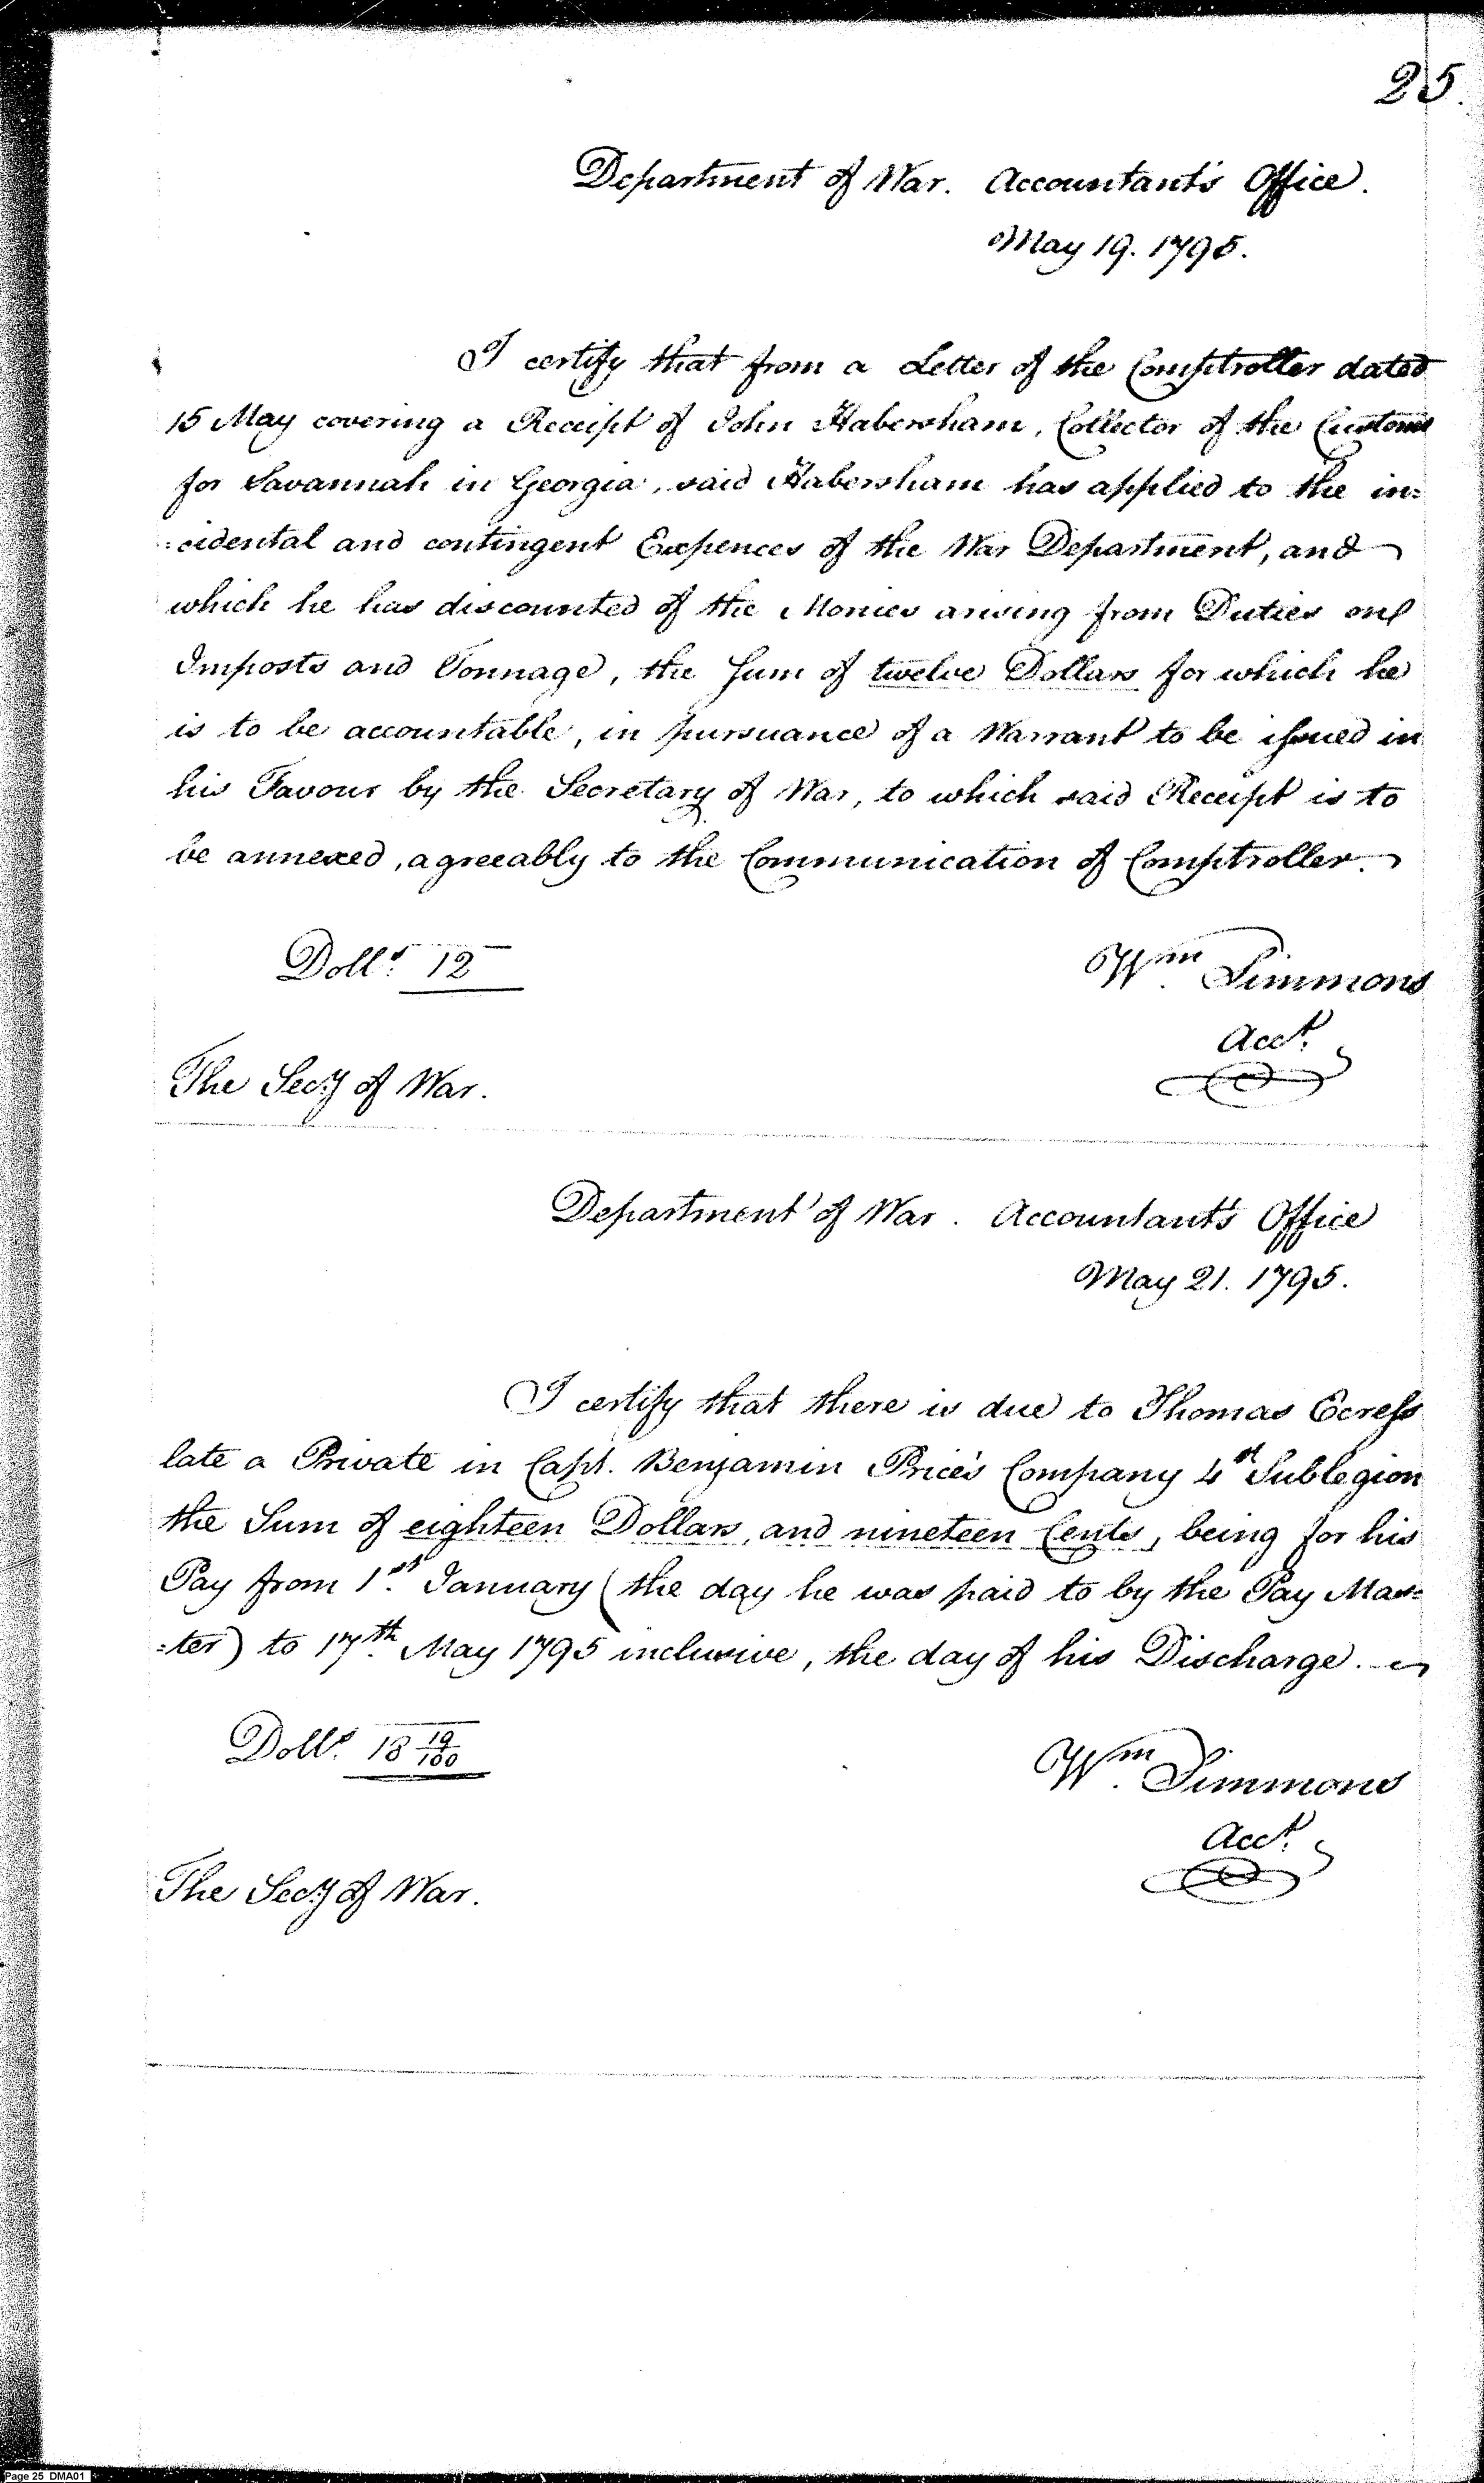 25.
Department of War. Accountant's Office.
May 19. 1795.
I certify that from a Letter of the Comptroller dated
15 May covering a Receipt of John Habersham, Collector of the Customs
for Savannah in Georgia, said Habersham has applied to the in=
=cidental and contingent Expences of the War Department, and
which he has discounted of the Monies arising from Duties on
Imposts and Tonnage, the Sum of twelve Dollars for which he
is to be accountable, in pursuance of a Warrant to be issued in
his Favour by the Secretary of War, to which said Receipt is to
be annexed, agreeably to the Communication of Comptroller.
Dolls. 12
Wm Simmons
Acct.
The Secy of War.
Department of War. Accountant's Office
May 21. 1795.
I certify that there is due to Thomas Ecress
late a Private in Capt. Benjamin Price's Company 4st Sublegion
the Sum of eighteen Dollars, and nineteen Cents, being for his
Pay from 1st January (the day he was paid to by the Pay Mas=
=ter) to 17th May 1795 inclusive, the day of his Discharge.
Dolls. 18 19/100
Wm Simmons
Acct.
The Secy of War.
Page 25 DMA01